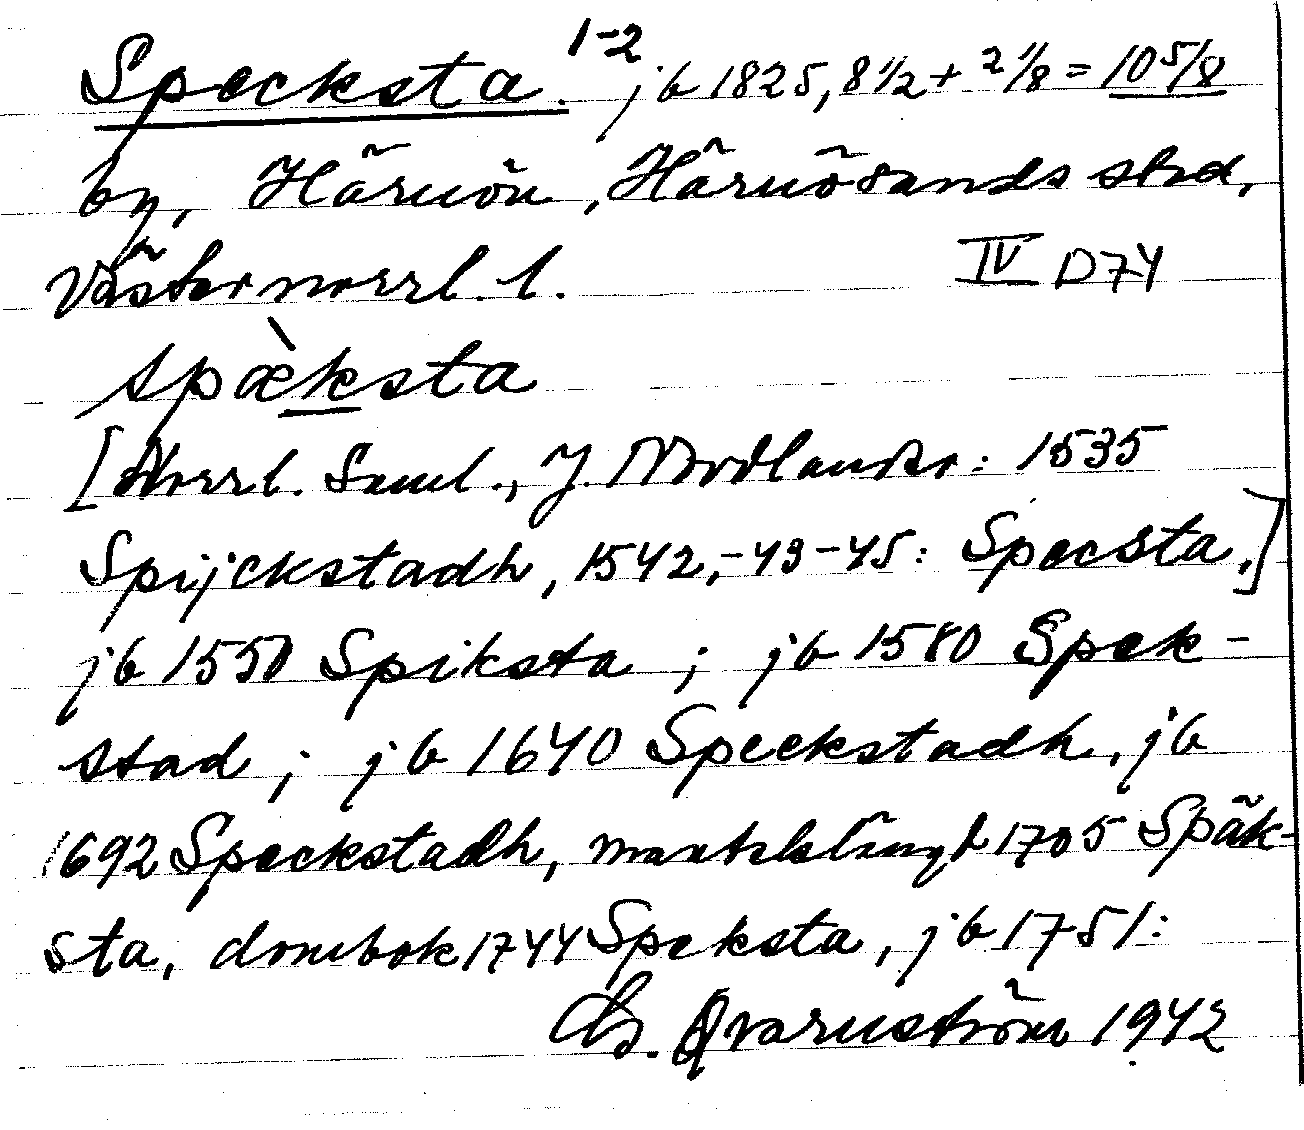 Specksta. 1-2 jb 1825, 8 1/2 + 2 1/8 = 10 5/8
by, Härnön, Härnösands stad,
Västernorrl. l. IV D74
spæ̀ksta
[Norrl. Saml., J. Nordlander: 1535
Spijckstadh, 1542, -43-45: Specsta.]
jb 1550 Spiksta ; jb 1580 Spek-
stad ; jb 1640 Speckstadh, jb
1692 Speckstadh, mantalslängd 1705 Späk-
sta, dombok 1744 Speksta, jb 1751:
Qvarnström 1942